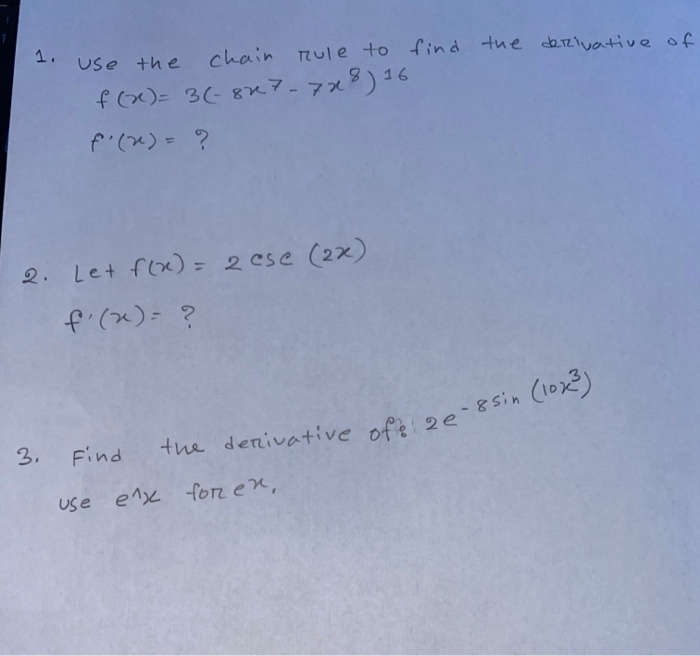 1. Use the chain rule to find the derivative of
f(x) = 3(-8x⁷ - 7x⁸)¹⁶
f'(x) = ?
2. Let f(x) = 2 csc (2x)
f'(x) = ?
3. Find the derivative of: 2e^-8 sin (10x³)
use e^x for ex.